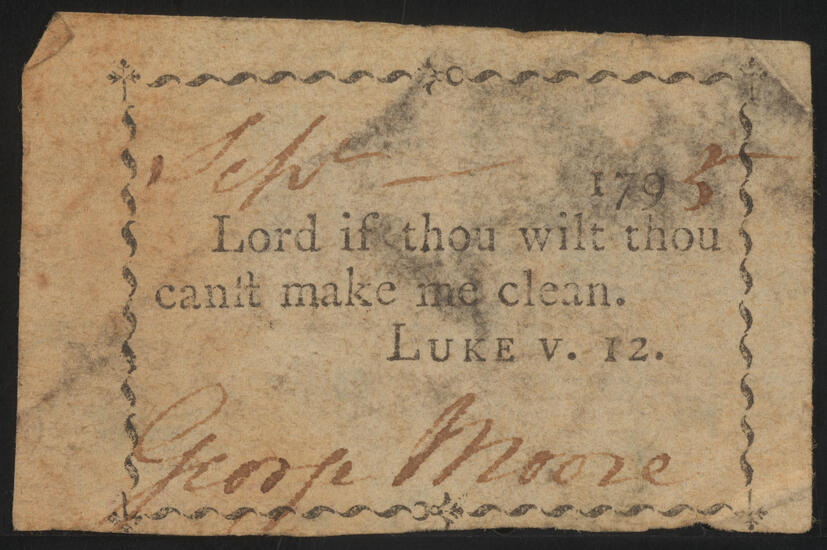 Sepr — 1795
Lord if thou wilt thou
canſt make me clean.
LUKE V. 12.
George Moore